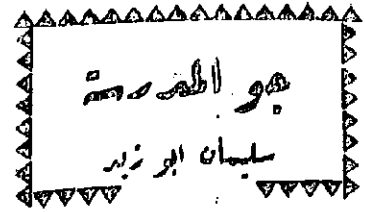 جو المدرسة
سليمان ابو زيد